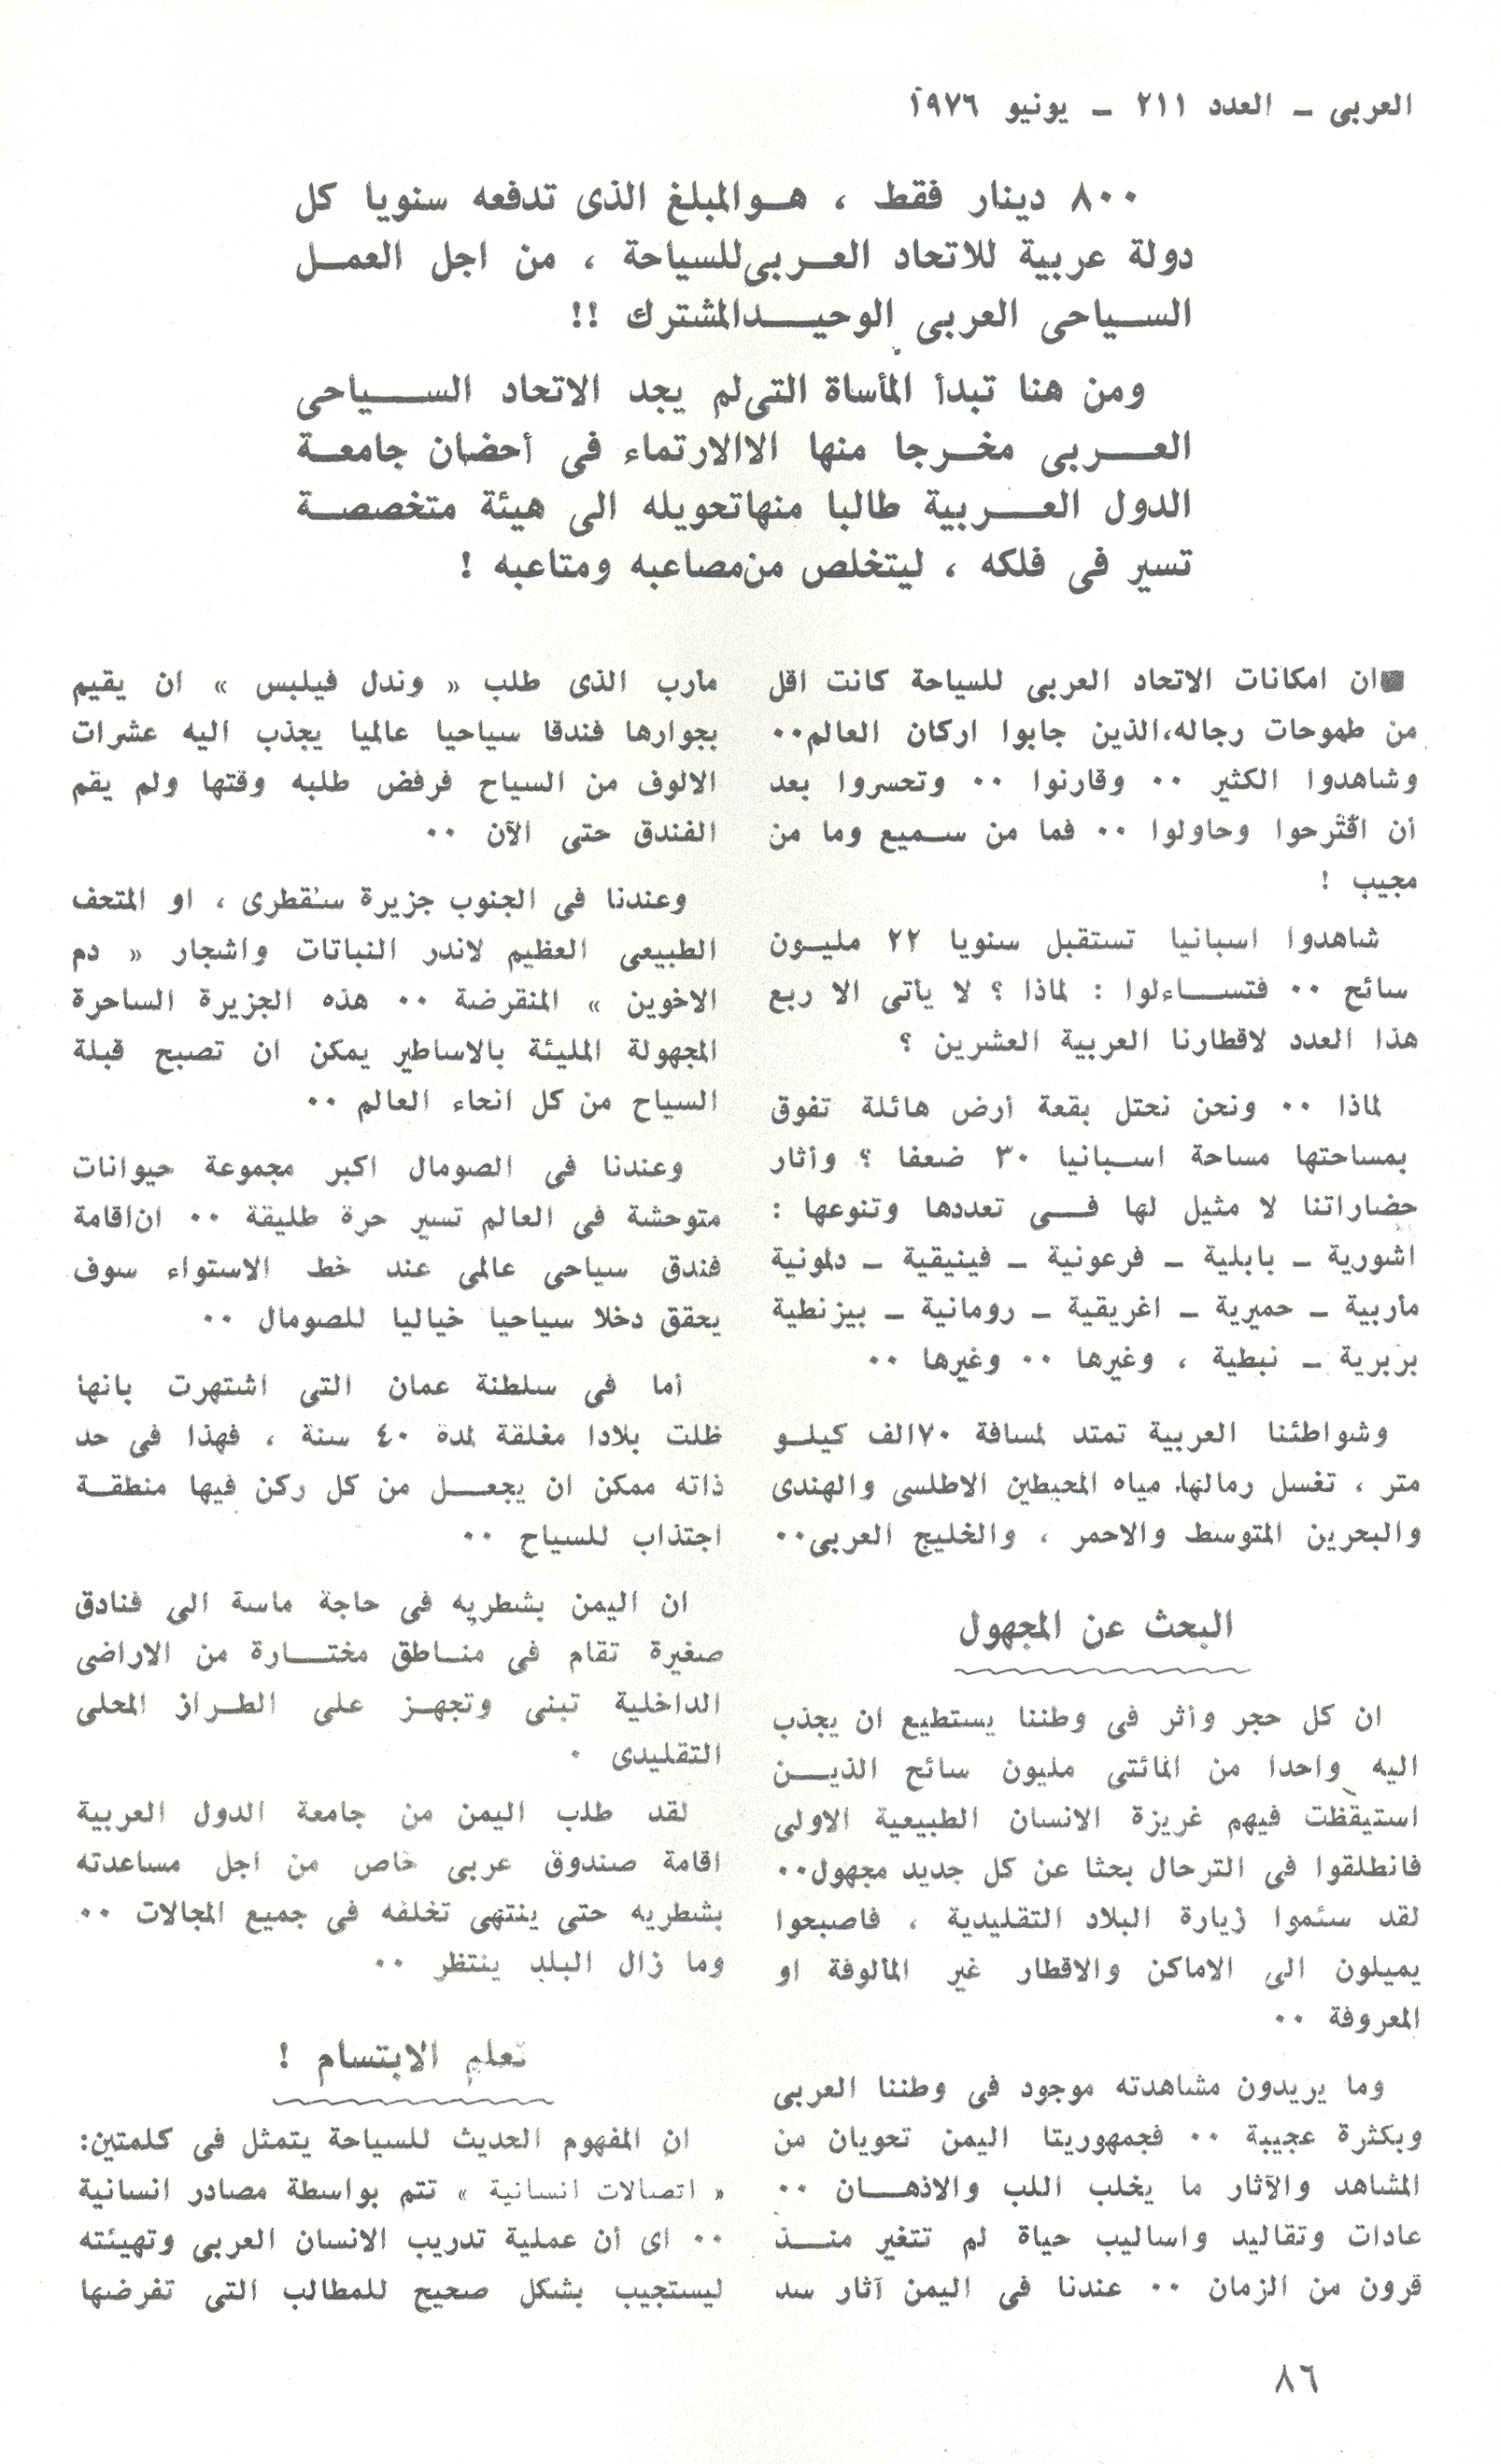 العربى ــ العدد ٢١١ ــ يونيو ١٩٧٦
٨٠٠ دينار فقط ، هو المبلغ الذى تدفعه سنويا كل
دولة عربية للاتحاد العربى للسياحة ، من اجل العمل
السياحى العربى الوحيد المشترك !!
ومن هنا تبدأ المأساة التى لم يجد الاتحاد السياحى
العربى مخرجا منها الا الارتماء فى أحضان جامعة
الدول العربية طالبا منها تحويله الى هيئة متخصصة
تسير فى فلكه ، ليتخلص من مصاعبه ومتاعبه !
ان امكانات الاتحاد العربى للسياحة كانت اقل
من طموحات رجاله، الذين جابوا اركان العالم٠٠
وشاهدوا الكثير ٠٠ وقارنوا ٠٠ وتحسروا بعد
أن اقترحوا وحاولوا ٠٠ فما من سميع وما من
مجيب !
شاهدوا اسبانيا تستقبل سنويا ٢٢ مليون
سائح ٠٠ فتساءلوا : لماذا ؟ لا ياتى الا ربع
هذا العدد لاقطارنا العربية العشرين ؟
لماذا ٠٠ ونحن نحتل بقعة أرض هائلة تفوق
بمساحتها مساحة اسبانيا ٣٠ ضعفا ؟ وأثار
حضاراتنا لا مثيل لها فى تعددها وتنوعها :
اشورية ــ بابلية ــ فرعونية ــ فينيقية ــ دلمونية
مأربية ــ حميرية ــ اغريقية ــ رومانية ــ بيزنطية
بربرية ــ نبطية ، وغيرها ٠٠ وغيرها ٠٠
وشواطئنا العربية تمتد لمسافة ٧٠الف كيلو
متر ، تغسل رمالها مياه المحيطين الاطلسى والهندى
والبحرين المتوسط والاحمر ، والخليج العربى٠٠
البحث عن المجهول
ان كل حجر وأثر فى وطننا يستطيع ان يجذب
اليه واحدا من المائتى مليون سائح الذين
استيقظت فيهم غريزة الانسان الطبيعية الاولى
فانطلقوا فى الترحال بحثا عن كل جديد مجهول٠٠
لقد سئموا زيارة البلاد التقليدية ، فاصبحوا
يميلون الى الاماكن والاقطار غير المألوفة او
المعروفة ٠٠
وما يريدون مشاهدته موجود فى وطننا العربى
وبكثرة عجيبة ٠٠ فجمهوريتا اليمن تحويان من
المشاهد والآثار ما يخلب اللب والاذهان ٠٠
عادات وتقاليد واساليب حياة لم تتغير منذ
قرون من الزمان ٠٠ عندنا فى اليمن آثار سد
مأرب الذى طلب « وندل فيلبس » ان يقيم
بجوارها فندقا سياحيا عالميا يجذب اليه عشرات
الالوف من السياح فرفض طلبه وقتها ولم يقم
الفندق حتى الآن ٠٠
وعندنا فى الجنوب جزيرة سقطرى ، او المتحف
الطبيعى العظيم لاندر النباتات واشجار « دم
الاخوين » المنقرضة ٠٠ هذه الجزيرة الساحرة
المجهولة المليئة بالاساطير يمكن ان تصبح قبلة
السياح من كل انحاء العالم ٠٠
وعندنا فى الصومال اكبر مجموعة حيوانات
متوحشة فى العالم تسير حرة طليقة ٠٠ ان اقامة
فندق سياحى عالمى عند خط الاستواء سوف
يحقق دخلا سياحيا خياليا للصومال ٠٠
أما فى سلطنة عمان التى اشتهرت بانها
ظلت بلادا مغلقة لمدة ٤٠ سنة ، فهذا فى حد
ذاته ممكن ان يجعل من كل ركن فيها منطقة
اجتذاب للسياح ٠٠
ان اليمن بشطريه فى حاجة ماسة الى فنادق
صغيرة تقام فى مناطق مختارة من الاراضى
الداخلية تبنى وتجهز على الطراز المحلى
التقليدى ٠
لقد طلب اليمن من جامعة الدول العربية
اقامة صندوق عربى خاص من اجل مساعدته
بشطريه حتى ينتهى تخلفه فى جميع المجالات ٠٠
وما زال البلد ينتظر ٠٠
تعلم الابتسام !
ان المفهوم الحديث للسياحة يتمثل فى كلمتين:
« اتصالات انسانية » تتم بواسطة مصادر انسانية
٠٠ اى أن عملية تدريب الانسان العربى وتهيئته
ليستجيب بشكل صحيح للمطالب التى تفرضها
٨٦